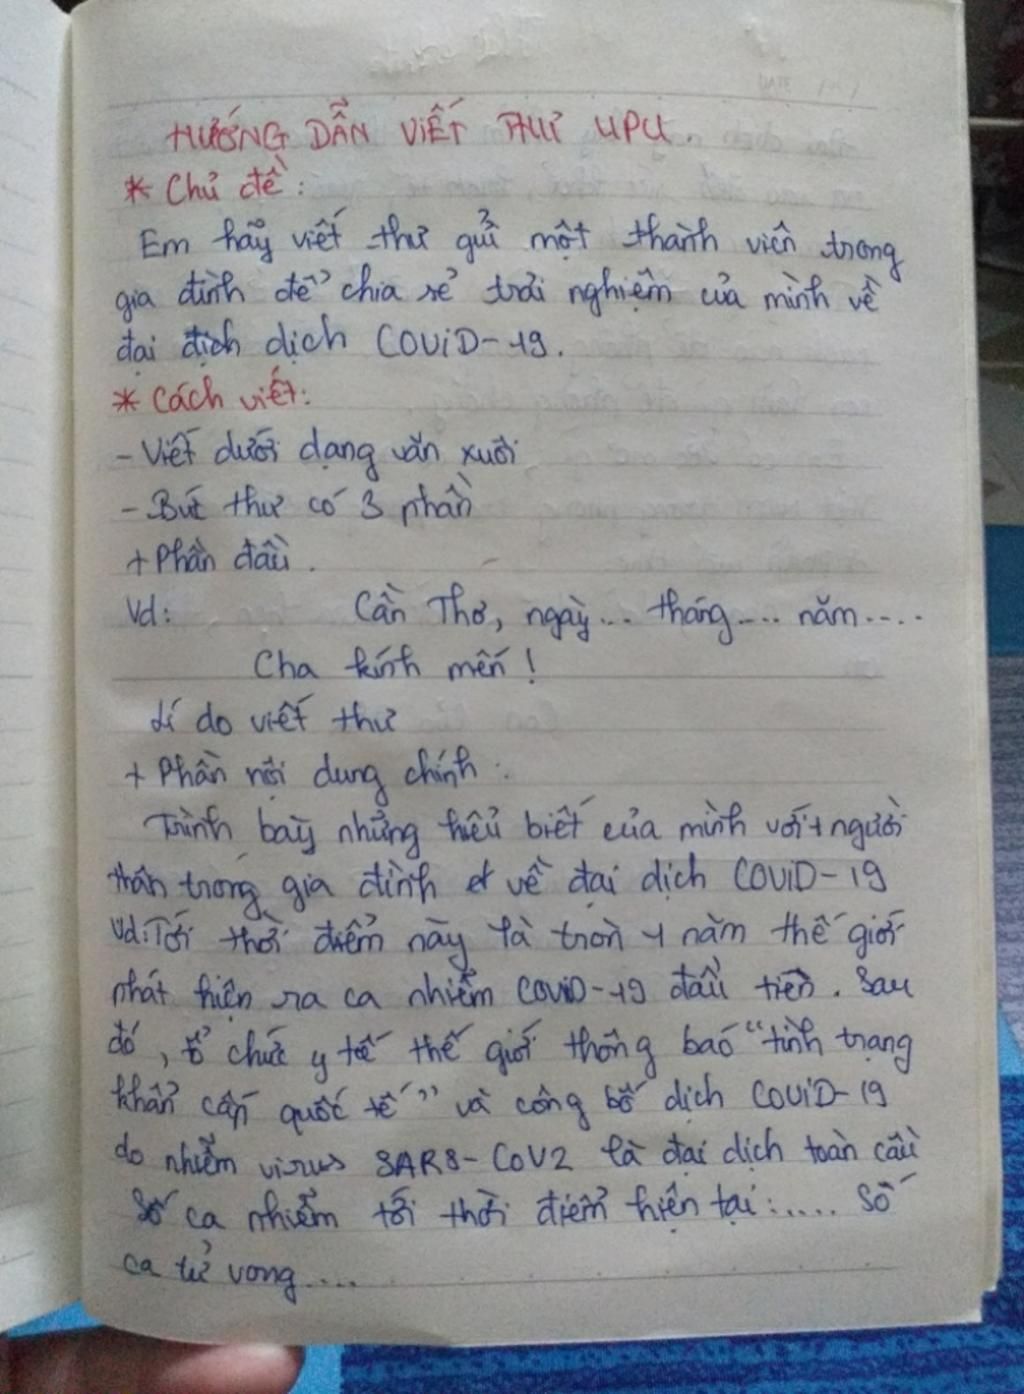 HƯỚNG DẪN VIẾT THƯ UPU
* Chủ đề:
Em hãy viết thư gửi một thành viên trong
gia đình để chia sẻ trải nghiệm của mình về
đại dịch COViD-19.
* Cách viết:
- Viết dưới dạng văn xuôi
- Bức thư có 3 phần
+ Phần đầu.
Vd: Cần Thơ, ngày... tháng.... năm....
Cha kính mến!
Lí do viết thư
+ Phần nội dung chính:
Trình bày những hiểu biết của mình với 1 người
thân trong gia đình về đại dịch COViD-19
Vd: Tới thời điểm này là tròn 1 năm thế giới
phát hiện ra ca nhiễm COViD-19 đầu tiên. Sau
đó, tổ chức y tế thế giới thông báo "tình trạng
khẩn cấp quốc tế" và công bố dịch COViD-19
do nhiễm virus SARS-CoV2 là đại dịch toàn cầu
Số ca nhiễm tới thời điểm hiện tại:..... Số
ca tử vong....